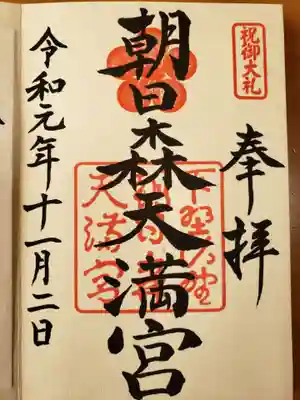 祝御大礼
奉拝
朝日森天満宮
令和元年十一月二日
天満宮